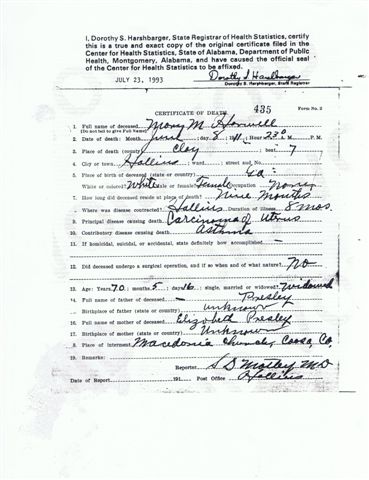 I, Dorothy S. Harshbarger, State Registrar of Health Statistics, certify
this is a true and exact copy of the original certificate filed in the
Center for Health Statistics, State of Alabama, Department of Public
Health, Montgomery, Alabama, and have caused the official seal
of the Center for Health Statistics to be affixed.
JULY 23, 1993 Dorothy S Harshbarger
Dorothy S. Harshbarger, State Registrar
435 Form No. 2
CERTIFICATE OF DEATH
1. Full name of deceased Mary M
(Do not fail to give Full Name)
2. Date of death: Month June day 8 11 Hour 230 A.M. P.M.
3. Place of death (county) Clay beat 7
4. City or town Hollins ward street and No.
5. Place of birth of deceased (state or county) Ga
6. White or colored? White male or female? Female Occupation None
7. How long did deceased reside at place of death? Nine Months
8. Where was disease contracted? Hollins Duration of illness 8 mos.
9. Principal disease causing death Carcinoma of Utrus
10. Contributory disease causing death Asthma
11. If homicidal, suicidal, or accidental, state definitely how accomplished —
12. Did deceased undergo a surgical operation, and if so when and of what nature? No
13. Age: Years 70 months 5 days 16 single, married or widowed? Widowed
14. Full name of father of deceased — Presley
15. Birthplace of father (state or county) unknown
16. Full name of mother of deceased Elizabeth Presley
17. Birthplace of mother (state or county) Unknown
18. Place of interment Macedonia Coosa Co.
19. Remarks:
Reporter S D Motley M D
Date of Report 191 Post Office Hollins